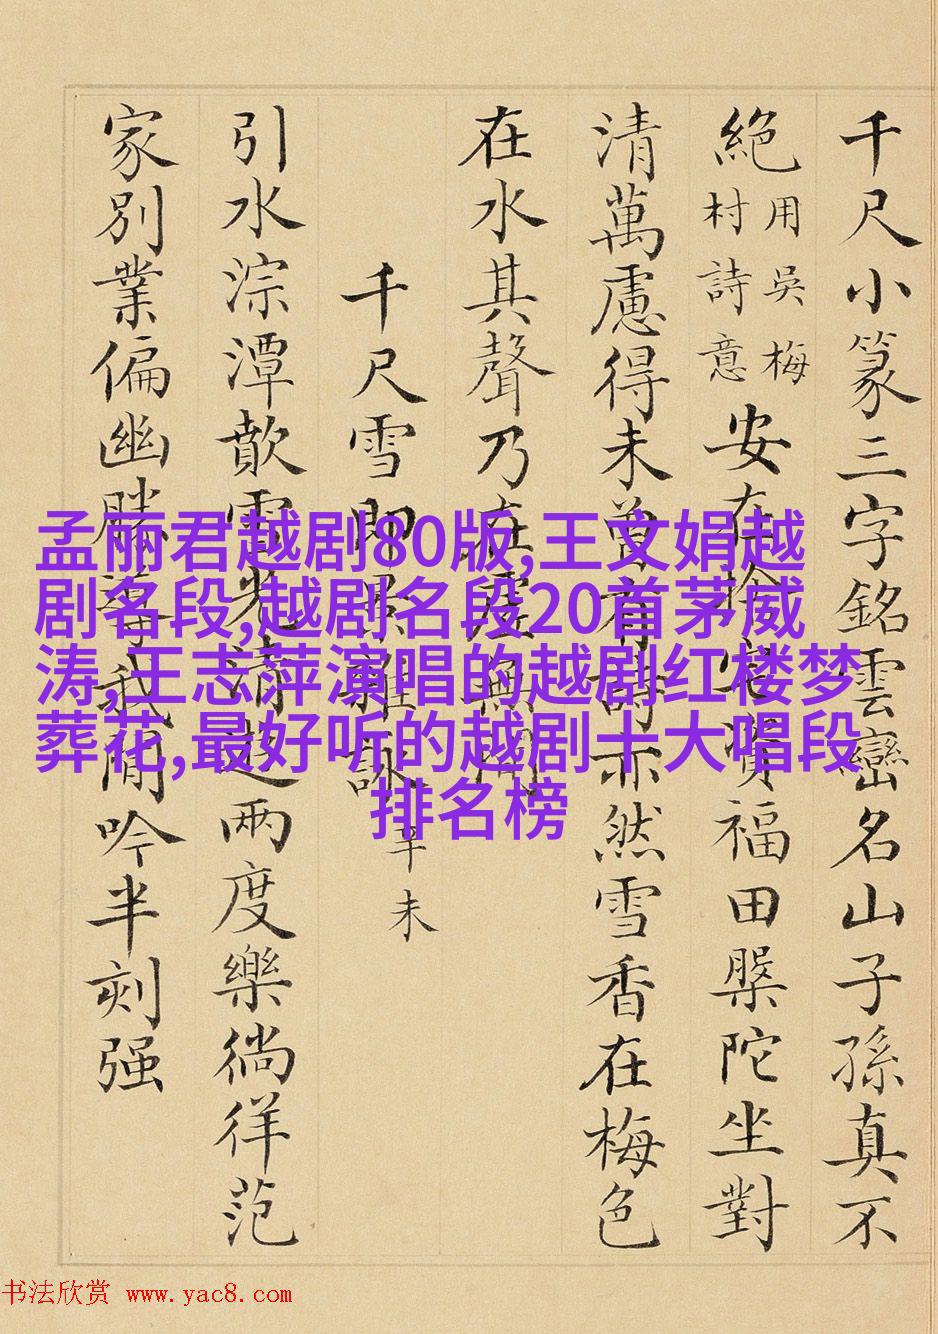 千尺小篆三字銘雲巒名山子孫真不
絕
用吳梅
村詩意
安在捨宅資福田槃陀坐對
清萬慮得未曾有詩亦然雪香在梅色
在水其聲乃在虛無間
千尺雪即景雜詠
辛未
引水淙潭歕雪光清超兩度樂徜徉范
家別業偏幽勝我閒吟半刻强
孟丽君越剧80版,王文娟越
剧名段,越剧名段20首茅威
涛,王志萍演唱的越剧红楼梦
葬花,最好听的越剧十大唱段
排名榜
书法欣赏 www.yac8.com